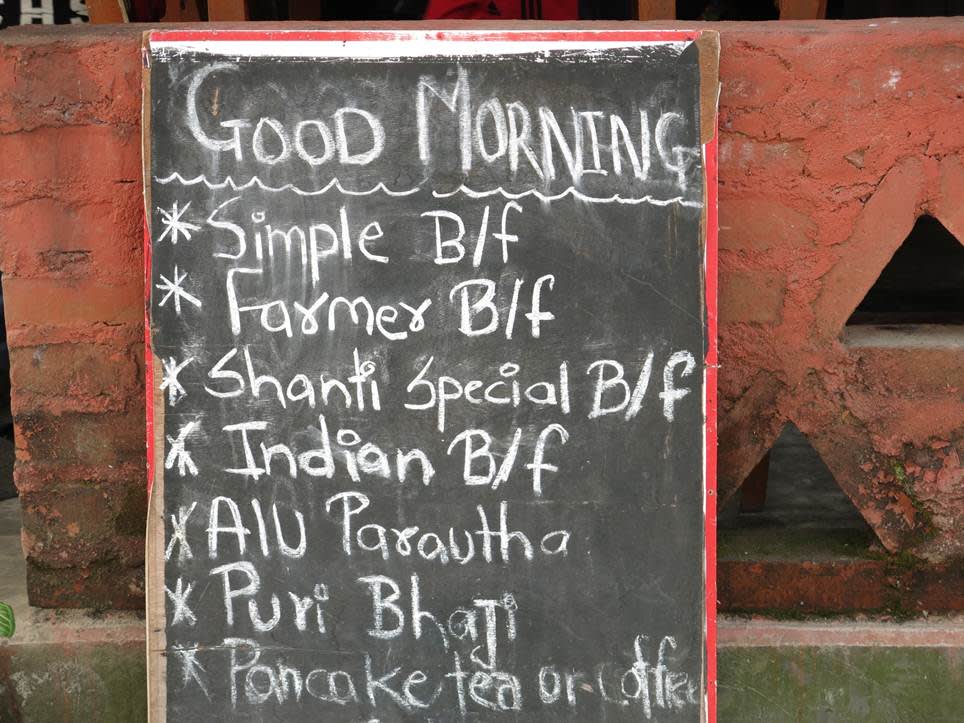 CHS
GOOD MORNING
* Simple B/f
* Farmer B/f
* Shanti Special B/f
* Indian B/f
* Alu Parautha
* Puri Bhaji
* Pancake tea or coffee